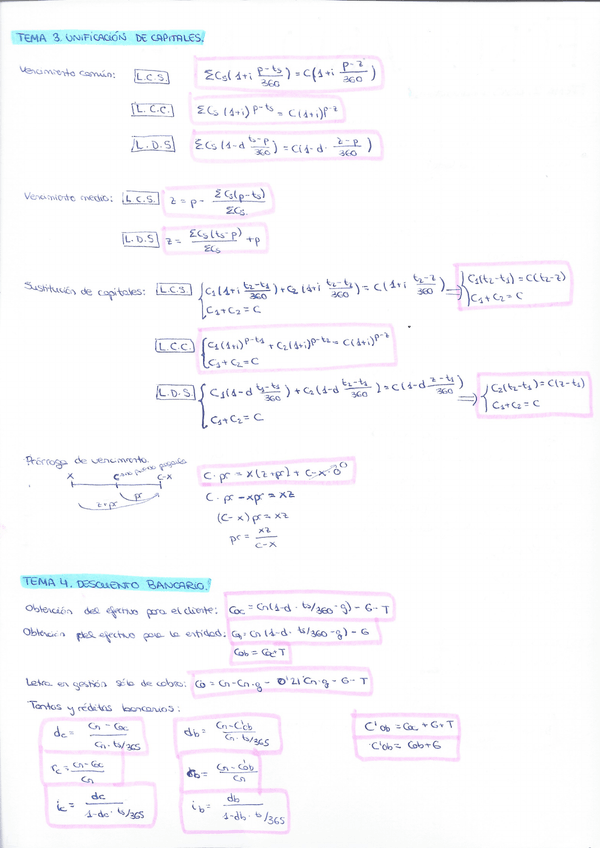 TEMA 3. UNIFICACIÓN DE CAPITALES.
Vencimiento común: L.C.S. ΣCs(1+i (p-ts)/360) = C(1+i (p-z)/360)
L.C.C. ΣCs (1+i)^(p-ts) = C(1+i)^(p-z)
L.D.S ΣCs (1-d (ts-p)/360) = C(1-d· (z-p)/360)
Vencimiento medio: L.C.S. z = p - ΣCs(p-ts)/ΣCs
L.D.S z = ΣCs(ts-p)/ΣCs + p
Sustitución de capitales: L.C.S { C1(1+i (t2-t1)/360) + C2(1+i (t2-ts)/360) = C(1+i (t2-z)/360) ⇒ { C1(t2-t1) = C(t2-z)
C1+C2 = C C1+C2 = C
L.C.C. { C1(1+i)^(p-t1) + C2(1+i)^(p-t2) = C(1+i)^(p-z)
C1+C2 = C
L.D.S { C1(1-d (t1-t1)/360) + C2(1-d (t2-t1)/360) = C(1-d (z-t1)/360) ⇒ { C2(t2-t1) = C(z-t1)
C1+C2 = C C1+C2 = C
Prórroga de vencimiento.
X C C-X
z+pr pr
C·pr = X(z+pr) + C-X·0
C·pr - xpr = xz
(C-x)pr = xz
pr = xz/(C-x)
TEMA 4. DESCUENTO BANCARIO.
Obtención del efectivo para el cliente: Coc = Cn(1-d· ts/360 -g) - G - T
Obtención del efectivo para la entidad: Co = Cn(1-d· ts/360 -g) - G
Cob = Coc+T
Letra en gestión sólo de cobro: Co = Cn-Cn·g - 0'21·Cn·g - G - T
Tantos y réditos bancarios:
dc = (Cn - Coc)/(Cn·ts/365) db = (Cn-C'ob)/(Cn·ts/365) C'ob = Coc + G + T
rc = (Cn-Coc)/Cn rb = (Cn-C'ob)/Cn C'ob = Cob+G
ic = dc/(1-dc·ts/365) ib = db/(1-db·ts/365)